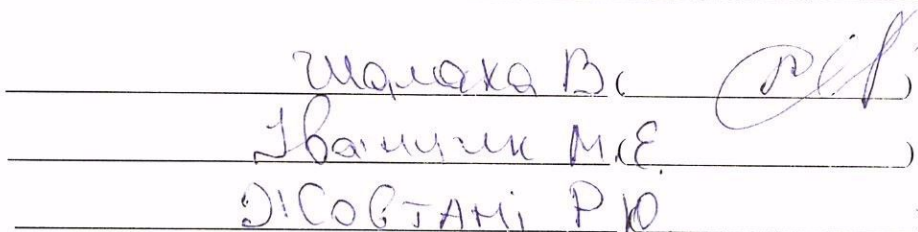 Шалака В (        )
Іванчик М.Є.        )
Жовтані Р Ю